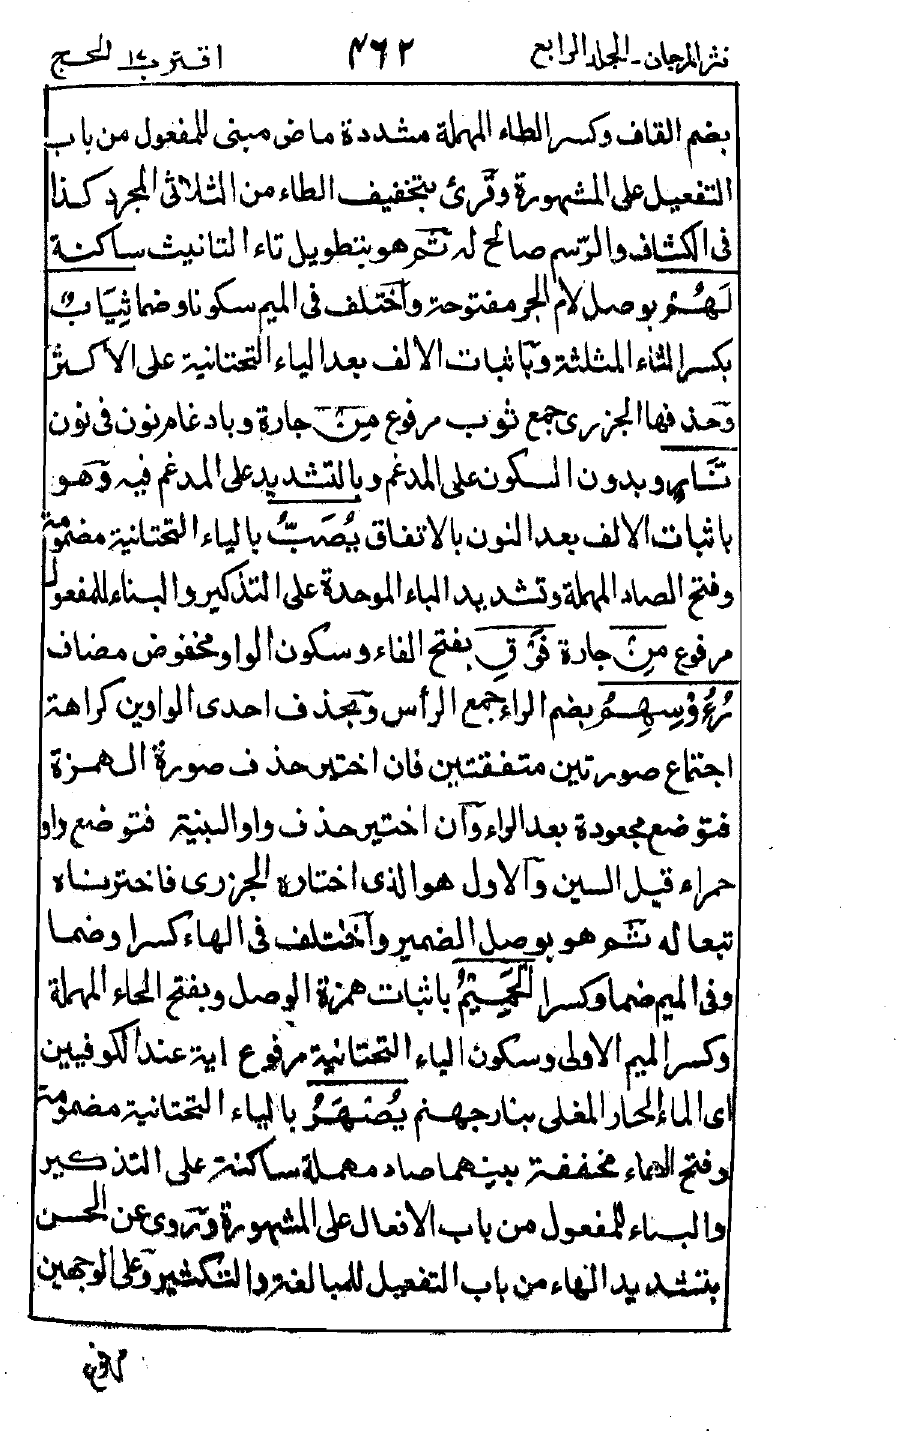 نثر المرجان - المجلد الرابع ٤٦٢ اقترب ١٧ الحج
بضم القاف وكسر الطاء المهملة مشددة ماض مبنى للمفعول من باب
التفعيل على المشهورة وقرئ بتخفيف الطاء من الثلاثى المجرد كذا
فى الكشاف والرسم صالح له ثم هو بتطويل تاء التانيث ساكنة
لَهُمْ بوصل لام الجر مفتوحة واختلف فى الميم سكونا وضما ثِيَابٌ
بكسر الثاء المثلثة وباثبات الالف بعد الياء التحتانية على الاكثر
وحذفها الجزرى جمع ثوب مرفوع مِنْ جارة وبادغام نون فى نون
نَّارٍ وبدون السكون على المدغم وبالتشديد على المدغم فيه وهو
باثبات الالف بعد النون بالاتفاق يُصَبُّ بالياء التحتانية مضمومة
وفتح الصاد المهملة وتشديد الباء الموحدة على التذكير والبناء للمفعول
مرفوع مِنْ جارة فَوْقِ بفتح الفاء وسكون الواو مخفوض مضاف
رُءُوْسِهِمُ بضم الراء جمع الرأس وبحذف احدى الواوين كراهة
اجتماع صورتين متفقتين فان اختير حذف صورة الهمزة
فتوضع مجعودة بعد الراء وان اختير حذف واو البنية فتوضع واو
حمراء قبل السين والاول هو الذى اختاره الجزرى فاخترناه
تبعا له ثم هو بوصل الضمير واختلف فى الهاء كسرا وضما
وفى الميم ضما وكسرا الْحَمِيْمُ باثبات همزة الوصل وبفتح الحاء المهملة
وكسر الميم الاولى وسكون الياء التحتانية مرفوع اية عند الكوفيين
اى الماء الحار المغلى بنار جهنم يُصْهَرُ بالياء التحتانية مضمومة
وفتح الهاء مخففة بينهما صاد مهملة ساكنة على التذكير
والبناء للمفعول من باب الافعال على المشهورة وروى عن الحسن
بتشديد الهاء من باب التفعيل للمبالغة والتكثير وعلى الوجهين
مرفوع